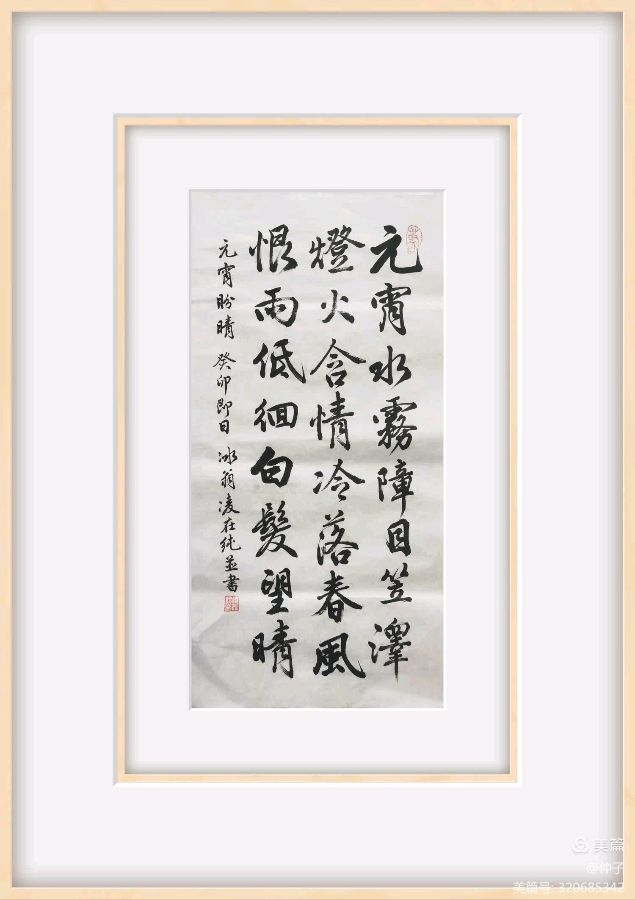 元宵水霧障目笠澤
燈火含情冷落春風
恨雨低徊白髮望晴
元宵盼晴 癸卯即日 冰翁凌在純並書
美篇
@仲子
美篇号: 320685342